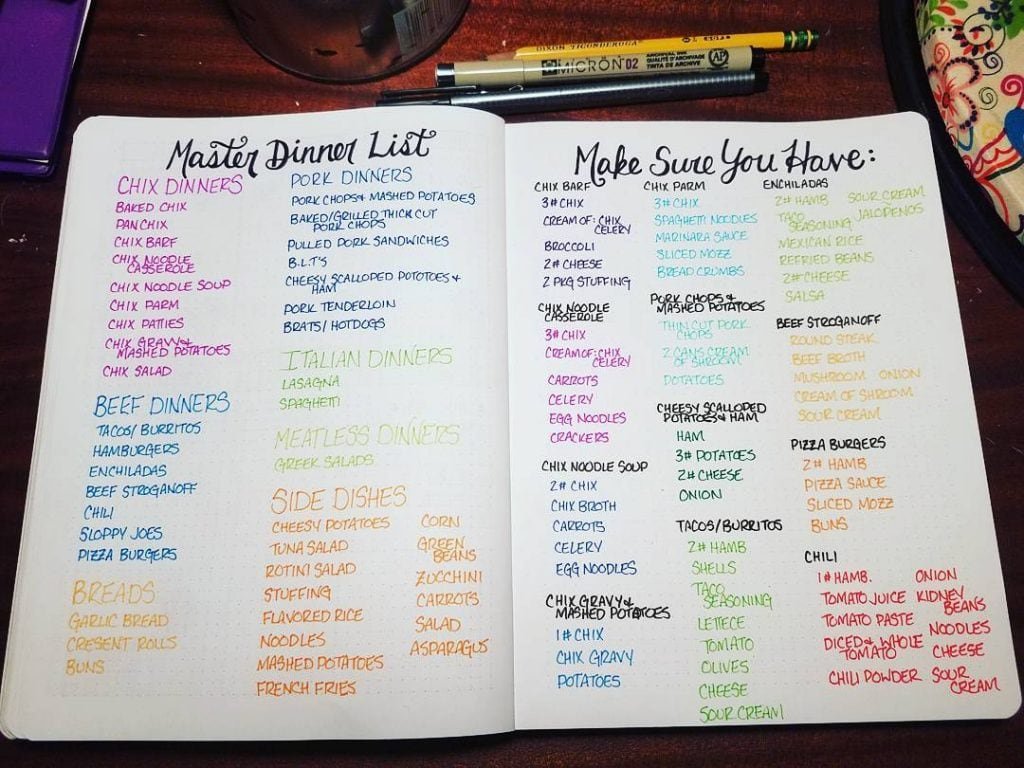 DIXON TICONDEROGA
MICRON 02
ARCHIVAL INK
QUALITÉ D'ARCHIVAGE
TINTA DE ARCHIVO
AP
Master Dinner List
CHIX DINNERS
BAKED CHIX
PAN CHIX
CHIX BARF
CHIX NOODLE
CASSEROLE
CHIX NOODLE SOUP
CHIX PARM
CHIX PATTIES
CHIX GRAVY &
MASHED POTATOES
CHIX SALAD
BEEF DINNERS
TACOS/BURRITOS
HAMBURGERS
ENCHILADAS
BEEF STROGANOFF
CHILI
SLOPPY JOES
PIZZA BURGERS
BREADS
GARLIC BREAD
CRESENT ROLLS
BUNS
PORK DINNERS
PORK CHOPS & MASHED POTATOES
BAKED/GRILLED THICK CUT
PORK CHOPS
PULLED PORK SANDWICHES
B.L.T'S
CHEESY SCALLOPED POTOTOES &
HAM
PORK TENDERLOIN
BRATS/HOTDOGS
ITALIAN DINNERS
LASAGNA
SPAGHETTI
MEATLESS DINNERS
GREEK SALADS
SIDE DISHES
CHEESY POTATOES
TUNA SALAD
ROTINI SALAD
STUFFING
FLAVORED RICE
NOODLES
MASHED POTATOES
FRENCH FRIES
CORN
GREEN
BEANS
ZUCCHINI
CARROTS
SALAD
ASPARAGUS
Make Sure You Have:
CHIX BARF
3# CHIX
CREAM OF: CHIX
CELERY
BROCCOLI
2# CHEESE
2 PKG STUFFING
CHIX NOODLE
CASSEROLE
3# CHIX
CREAM OF: CHIX
CELERY
CARROTS
CELERY
EGG NOODLES
CRACKERS
CHIX NOODLE SOUP
2# CHIX
CHIX BROTH
CARROTS
CELERY
EGG NOODLES
CHIX GRAVY &
MASHED POTATOES
1# CHIX
CHIX GRAVY
POTATOES
CHIX PARM
3# CHIX
SPAGHETTI NOODLES
MARINARA SAUCE
SLICED MOZZ
BREAD CRUMBS
PORK CHOPS &
MASHED POTATOES
THIN CUT PORK
CHOPS
2 CANS CREAM
OF SHROOM
POTATOES
CHEESY SCALLOPED
POTATOES & HAM
HAM
3# POTATOES
2# CHEESE
ONION
TACOS/BURRITOS
2# HAMB
SHELLS
TACO
SEASONING
LETTECE
TOMATO
OLIVES
CHEESE
SOUR CREAM
ENCHILADAS
2# HAMB SOUR CREAM
TACO JALAPENOS
SEASONING
MEXICAN RICE
REFRIED BEANS
2# CHEESE
SALSA
BEEF STROGANOFF
ROUND STEAK
BEEF BROTH
MUSHROOM ONION
CREAM OF SHROOM
SOUR CREAM
PIZZA BURGERS
2# HAMB
PIZZA SAUCE
SLICED MOZZ
BUNS
CHILI
1# HAMB.
TOMATO JUICE
TOMATO PASTE
DICED & WHOLE
TOMATO
CHILI POWDER
ONION
KIDNEY
BEANS
NOODLES
CHEESE
SOUR
CREAM